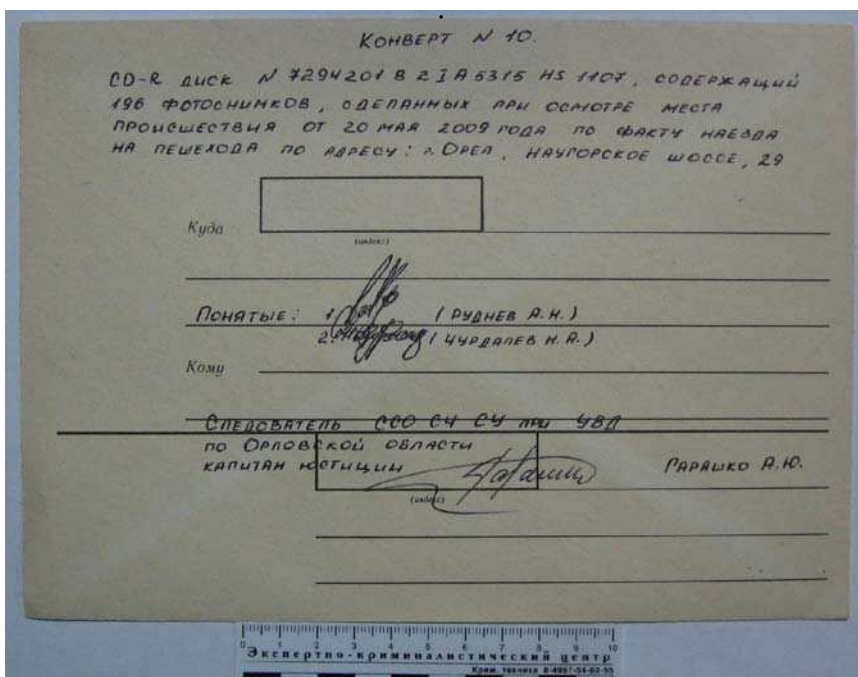 КОНВЕРТ N 10.
CD-R ДИСК N 7294201 В 2IA5315 HS 1107, СОДЕРЖАЩИЙ
196 ФОТОСНИМКОВ, СДЕЛАННЫХ ПРИ ОСМОТРЕ МЕСТА
ПРОИСШЕСТВИЯ ОТ 20 МАЯ 2009 ГОДА ПО ФАКТУ НАЕЗДА
НА ПЕШЕХОДА ПО АДРЕСУ: г. ОРЕЛ, НАУГОРСКОЕ ШОССЕ, 29
Куда
(индекс)
ПОНЯТЫЕ: 1. (РУДНЕВ А.Н.)
2. (ЧУРДАЛЕВ Н.А.)
Кому
СЛЕДОВАТЕЛЬ ССО СЧ СУ ПРИ УВД
ПО ОРЛОВСКОЙ ОБЛАСТИ
КАПИТАН ЮСТИЦИИ ГАРАШКО А.Ю.
(индекс)
0 1 2 3 4 5 6 7 8 9 10
Экспертно-криминалистический центр